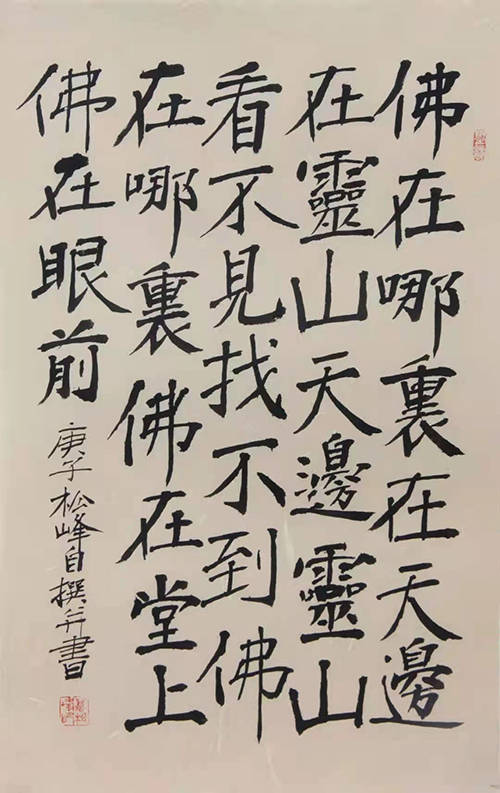 佛在哪裏在天邊
在靈山天邊靈山
看不見找不到佛
在哪裏佛在堂上
佛在眼前
庚子松峰自撰并書